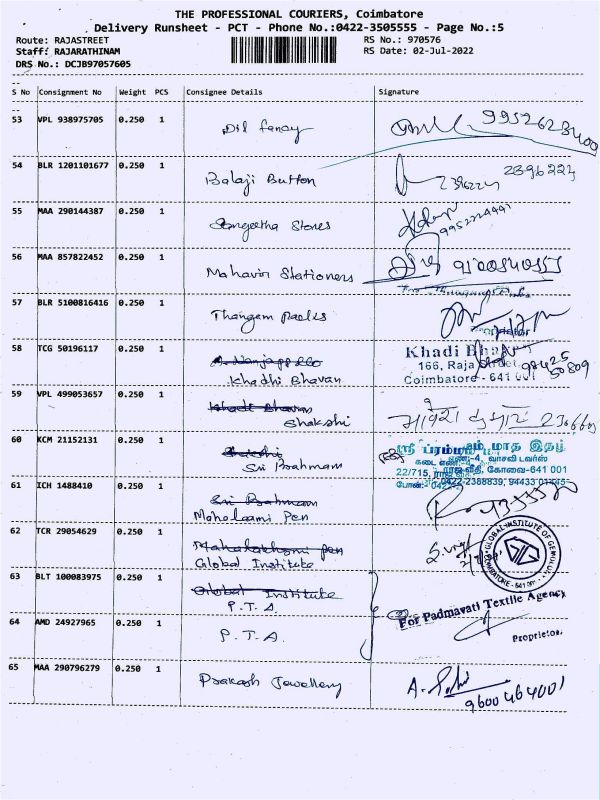 THE PROFESSIONAL COURIERS, Coimbatore
Delivery Runsheet - PCT - Phone No.:0422-3505555 - Page No.:5
Route: RAJASTREET RS No.: 970576
Staff: RAJARATHINAM RS Date: 02-Jul-2022
DRS No.: DCJB97057605
S No Consignment No Weight PCS Consignee Details Signature
53 VPL 938975705 0.250 1 Dil fancy
54 BLR 1201101677 0.250 1 Balaji Button 2396223
55 MAA 290144387 0.250 1 Sangeetha Stones
56 MAA 857822452 0.250 1 Mahavir Stationers
57 BLR 5100816416 0.250 1 Thangam
58 TCG 50196117 0.250 1
Khadhi Bhavan
Khadi
166, Raja Street
Coimbatore - 641 001
59 VPL 499053657 0.250 1 Khadi Bhavan
Shakshi
60 KCM 21152131 0.250 1 Shakshi
Sri Brahmam
ஸ்ரீ ப்ரம்மம் மாத இதழ்
வாசவி டவர்ஸ்
22/715, ராஜ வீதி, கோவை-641 001
0422-2388839, 94433
61 ICH 1488410 0.250 1 Sri Brahmam
Mahalaxmi Pen
62 TCR 29054629 0.250 1 Mahalakshmi pen
Global Institute
GLOBAL INSTITUTE OF GEMOLOGY
COIMBATORE - 641 001
63 BLT 100083975 0.250 1 Global Institute
P.T.A.
64 AMD 24927965 0.250 1 P.T.A.
For Padmavati Textile Agency
Proprietor.
65 MAA 290796279 0.250 1 Prakash Jewellery
9600464001